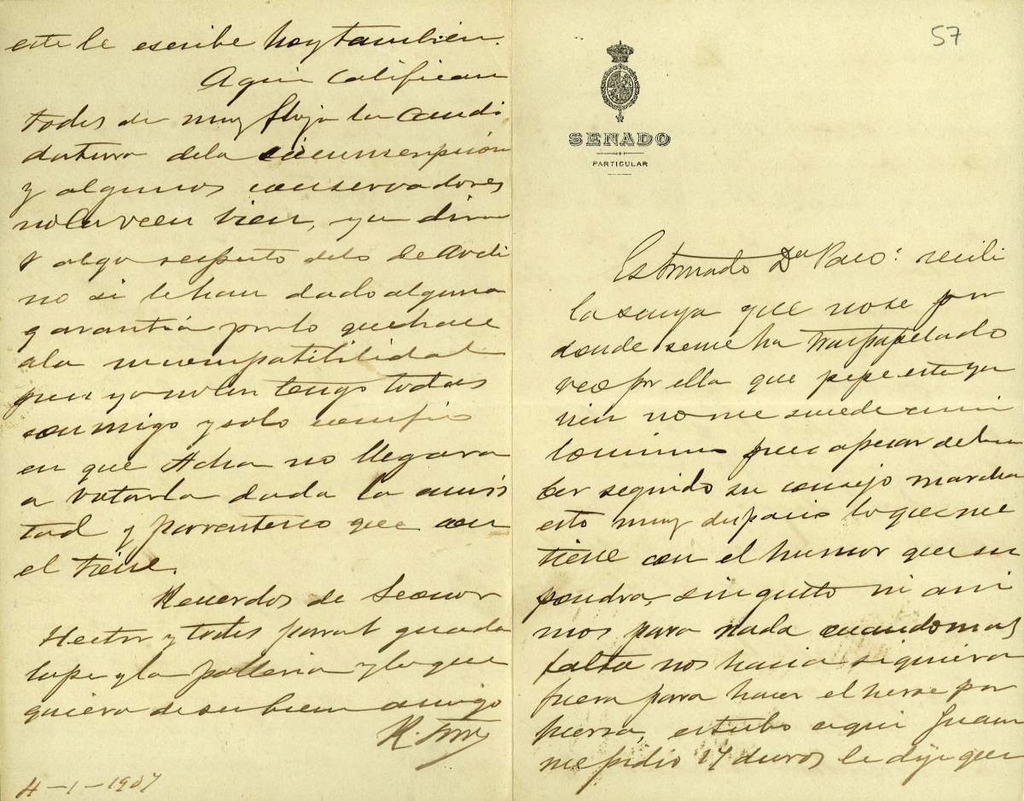 57
SENADO
PARTICULAR
Estimado Dn Paco: recibi
la suya que no se por
donde se me ha traspapelado
veo por ella que pepe esta ya
bien no me sucede a mi
lo mismo pues apesar de ha
ber seguido su consejo marcha
esto muy despacio lo que me
tiene con el humor que su
pondra, sin gusto ni ani
mos para nada cuando mas
falta nos hacia siquiera
fuera para hacer el heroe por
fuerza, estubo aqui Juan
me pidio 14 duros le dije que
este le escribe hoy tambien.
Aqui califican
todos de muy floja la candi
datura dela circunscripción
y algunos conservadores
no la veen bien, ya dira
V algo respecto
no si le han dado alguna
garantia por lo que hace
ala incompatibilidad
pues yo no las tengo todas
conmigo y solo confio
en que Acha no llegara
a votarla dada la amis
tad y parentesco que con
el tiene.
Recuerdos de Leonor
Hector y todos para Guada
lupe y la polleria y lo que
quiera de su buen amigo
4-1-1907